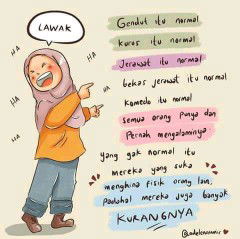 LAWAK
HA
HA
HA
HA
HA
HA
Gendut itu normal
kurus itu normal
Jerawat itu normal
bekas jerawat itu normal
Komedo itu normal
semua orang punya dan
Pernah mengalaminya
yang gak normal itu
mereka yang suka
menghina fisik orang lain,
Padahal mereka juga banyak
KURANGNYA